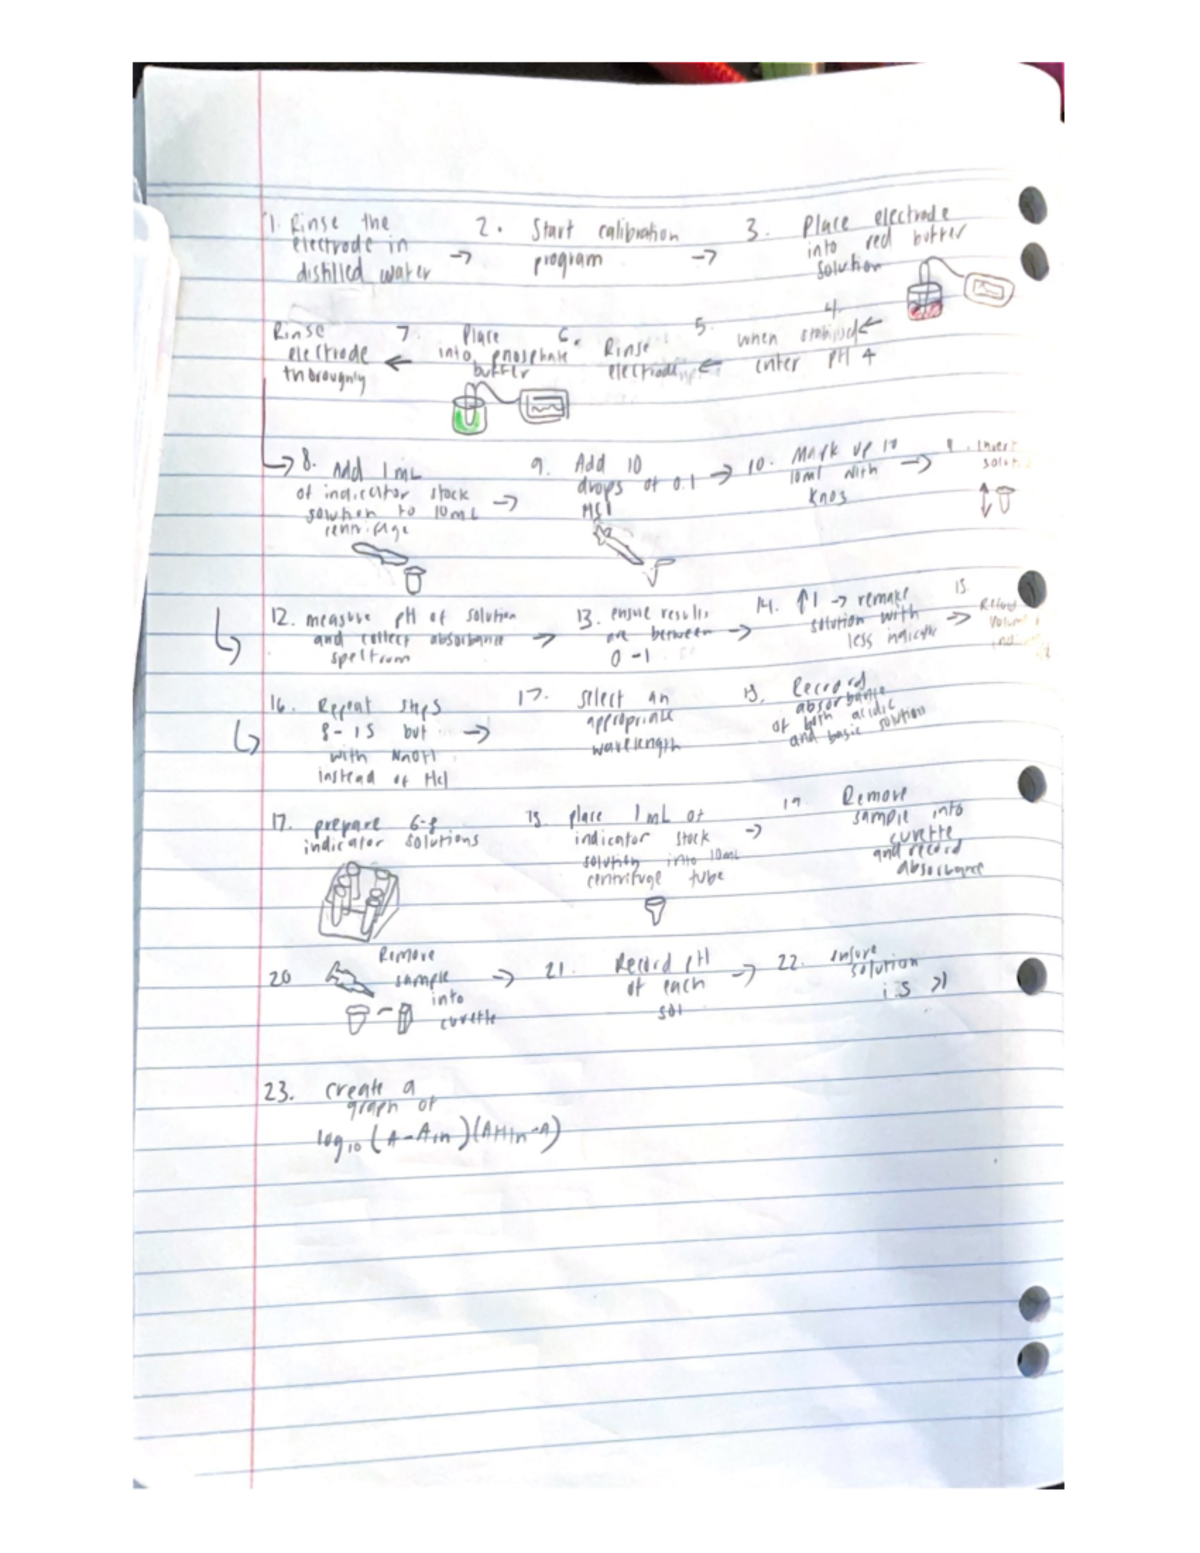 1. Rinse the
electrode in
distilled water →
2. Start calibration
program →
3. Place electrode
into red buffer
solution
4.
when stabilised ←
enter pH 4
5.
Rinse
electrode ←
6.
Place
into phosphate
buffer
7.
Rinse
electrode ←
thoroughly
→ 8. Add 1mL
of indicator stock →
solution to 10mL
centrifuge
9. Add 10
drops of 0.1 →
HCl
10. Mark up to
10ml with →
KNO3
Invert
12. measure pH of solution
and collect absorbance →
spectrum
13. ensure results
are between →
0-1
14. ↑1 → remake
solution with →
less indicator
15.
Record
16. Repeat steps
8-15 but →
with NaOH
instead of HCl
17. select an
appropriate
wavelength
18. Record
absorbance
of both acidic
and basic solution
17. prepare 6-8
indicator solutions
18. place 1mL of
indicator stock →
solution into 10mL
centrifuge tube
19. Remove
sample into
cuvette
and record
absorbance
20 Remove
sample →
into
cuvette
21. Record pH
of each →
sol
22. ensure
solution
is >1
23. create a
graph of
log10 (A-AIn)(AHIn-A)